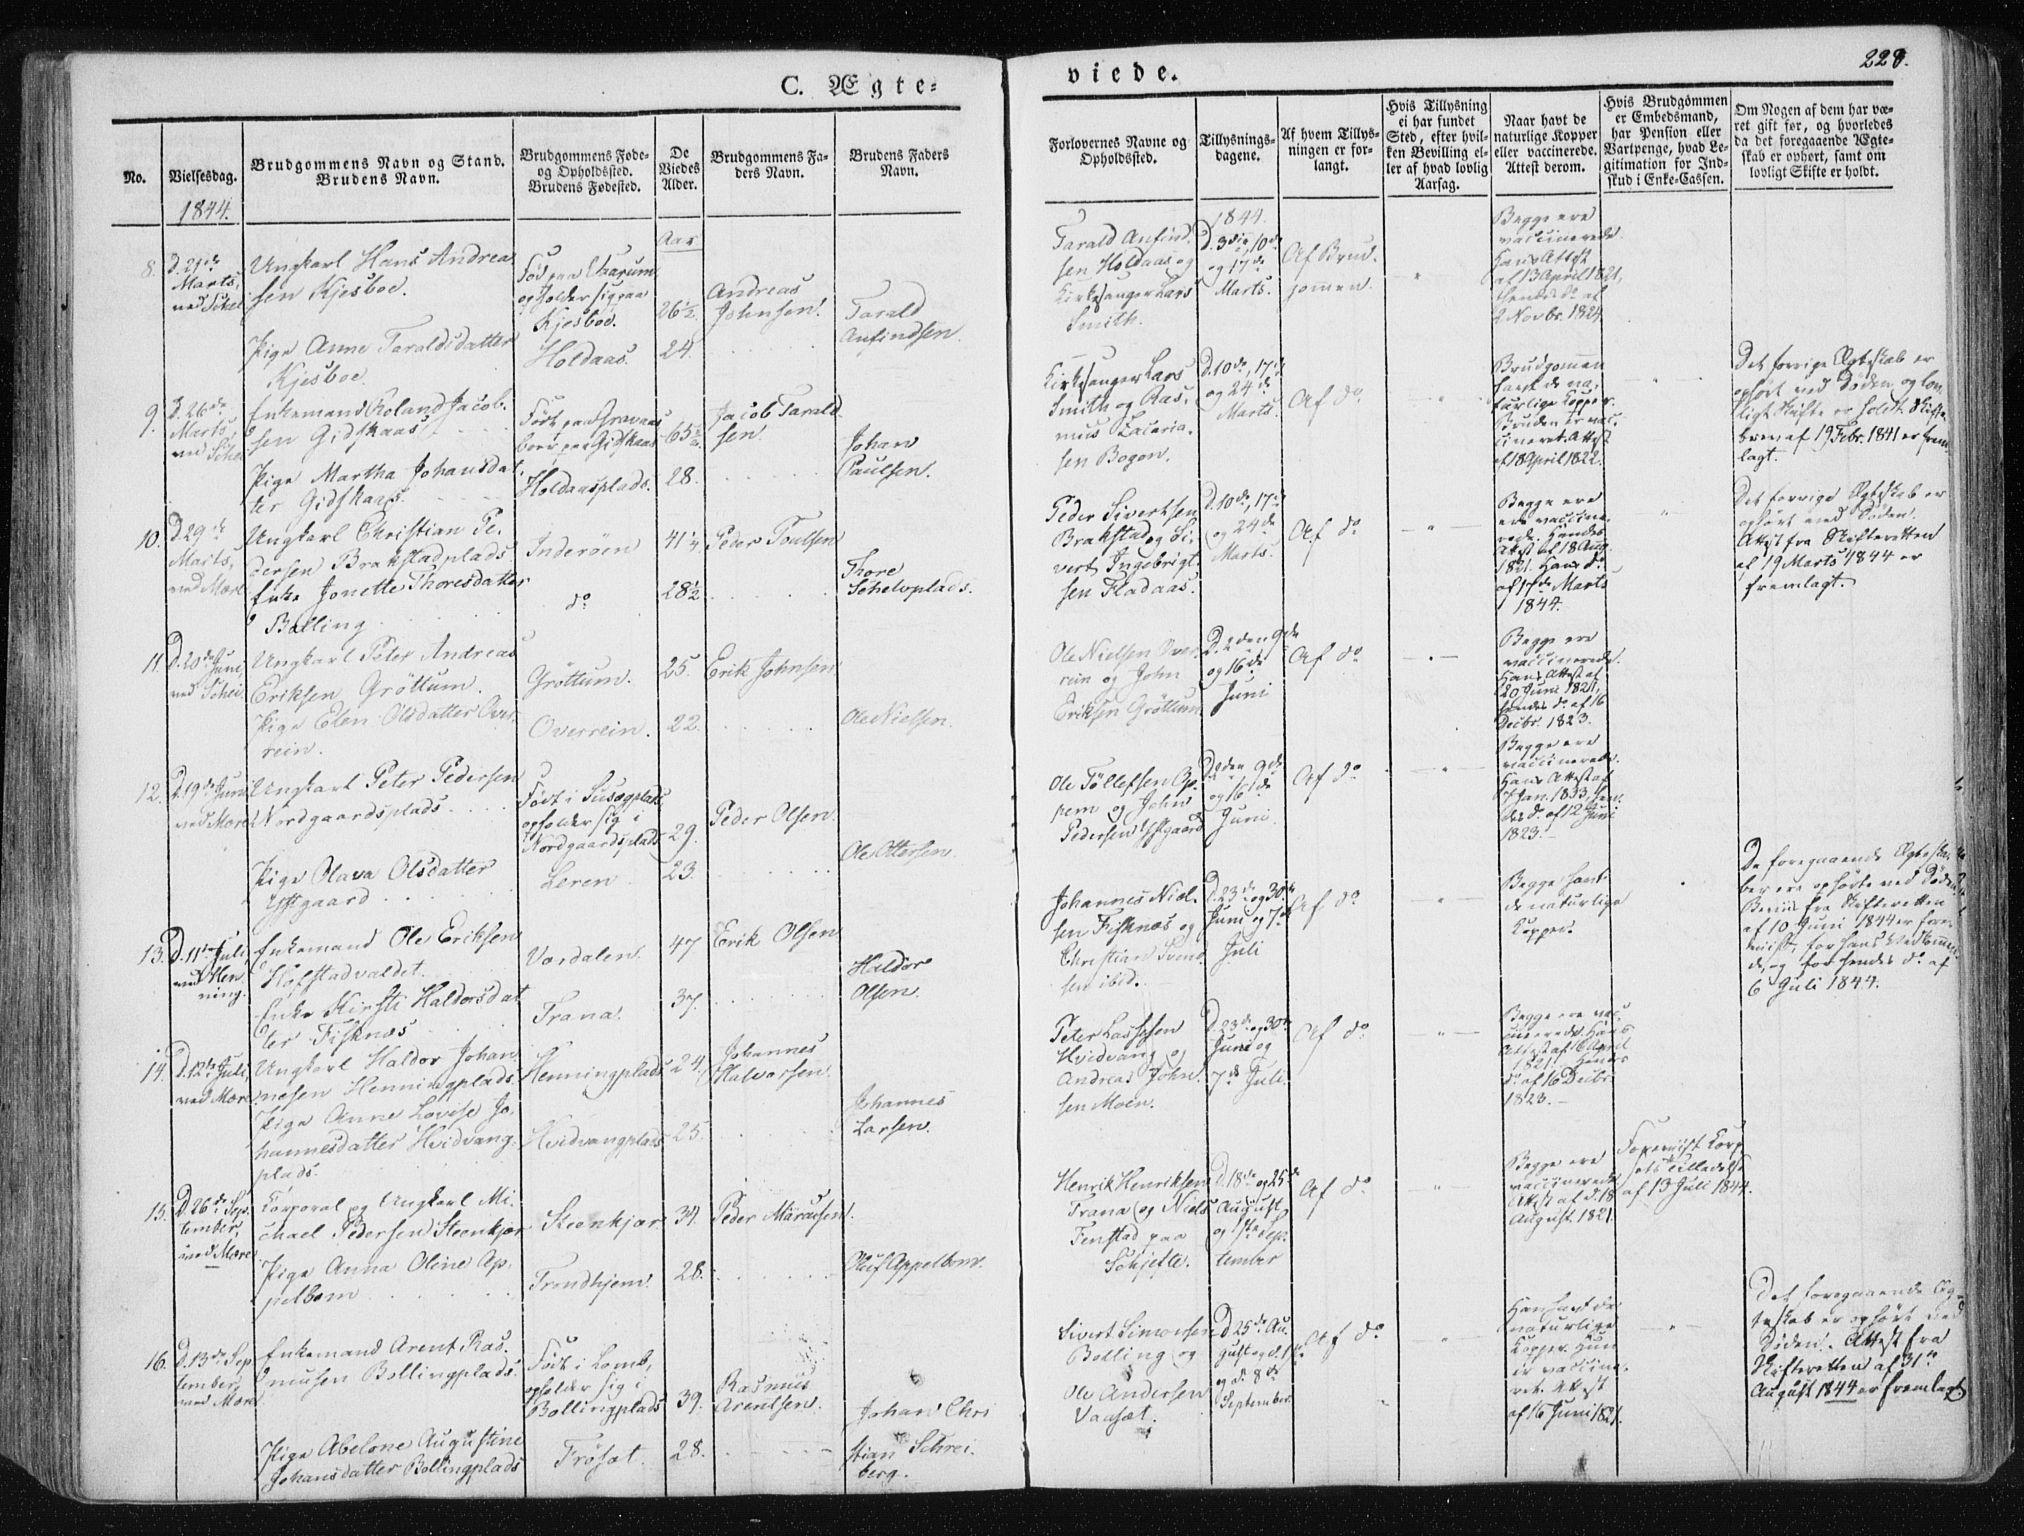 C. Ægte-
viede.
228.
No.
Vielsesdag.
Brudgommens Navn og Stand.
Brudens Navn.
Brudgommens Føde-
og Opholdssted.
Brudens Fødested.
De
Viedes
Alder.
Brudgommens Fa-
ders Navn.
Brudens Faders
Navn.
Forlovernes Navne og
Opholdssted.
Tillysnings-
dagene.
Af hvem Tillys-
ningen er for-
langt.
Hvis Tillysning
ei har fundet
Sted, efter hvil-
ken Bevilling el-
ler af hvad lovlig
Aarsag.
Naar havt de
naturlige Kopper
eller vaccinerede.
Attest derom.
Hvis Brudgommen
er Embedsmand,
har Pension eller
Vartpenge, hvad Le-
gitimation for Ind-
skud i Enke-Cassen.
Om Nogen af dem har væ-
ret gift før, og hvorledes
da det foregaaende Ægte-
skab er ophørt, samt om
lovligt Skifte er holdt.
1844.
Aar
8.
D. 21de
Marts,
ved
Ungkarl Hans Andrea
sen Kjesboe.
Pige Anne Taraldsdatter
Kjesboe
Fød paa
og holder sig paa
Kjesboe.
Holdaas.
26½
24.
Andreas
Johnsen.
Tarald
Anfindsen.
Tarald Anfind-
sen Holdaas og
Kirkesanger Lars
Smith.
1844.
D. 3die, 10de
og 17de
Marts.
Af Brud-
gomen.
Begge ere
vaccinerede.
Hans Attest
af 13 April 1821,
hendes do af
2 Novbr. 1824
9.
D. 26de
Marts,
ved Schei
Enkemand Roland Jacob-
sen Gidskaas
Pige Martha Johansdat-
ter Gidskaas.
Født paa Gravaas
boer paa Gidskaas
Holdaasplads.
65½
28.
Jacob Tarald
sen.
Johan
Paulsen.
Kirkesanger Lars
Smith og Ras-
mus Zacaria-
sen Bogen.
D. 10de, 17de
og 24de
Marts.
Af do
Brudgomen
havt de na-
turlige Kopper.
Bruden er vac-
cineret. Attest
af 18 April 1822.
Det forrige Ægteskab er
ophørt ved Døden og lov-
ligt Skifte er holdt. Skifte-
brev af 19 Febr. 1841 er frem-
lagt.
10.
D. 29de
Marts,
ved Mære
Ungkarl Christian Pe-
dersen Brakstadplads
Enke Jonette Thoresdatter
Bolling
Inderöen
do
41¼
28½
Peder Poulsen
Thore
Schelvplads.
Peder Sivertsen
Brakstad og Si-
vert Ingebrigt-
sen Fladaas.
D. 10de, 17de
og 24de
Marts.
Af do
Begge ere
ere vaccine-
rede. Hendes
Attest af 18 Aug.
1821. Hans do
af 17de Marts
1844.
Det forrige Ægteskab er
ophørt med Døden.
Attest fra Skifteretten
af 19 Marts 1844 er
fremlagt.
11.
D. 20de Juni,
ved Schei
Ungkarl Peter Andreas
Eriksen Gröttum.
Pige Elen Olsdatter Over-
rein.
Gröttum.
Overrein.
25.
22.
Erik Johnsen
Ole Nielsen.
Ole Nielsen Over-
rein og John
Eriksen Gröttum
D. 2den 9de
og 16de
Juni
Af do
Begge ere
vaccinerede.
Hans Attest af
20 Juni 1821,
hendes do af 16
Decbr 1823.
12.
D. 19de Juni
ved Mære
Ungkarl Peter Pedersen
Nordgaardsplads
Pige Olava Olsdatter
gaard
Født i Susegplads
opholder sig i
Nordgaardsplads
Leren
29.
23.
Peder Olsen
Ole Ottersen.
Ole Töllefsen Op-
pem og John
Pedersen
D. 2den 9de
og 16de
Juni.
Af do
Begge ere
vaccinerede.
Hans Attest af
Jan. 1833, hen-
des do. af 12 Juni
1823.
13.
D. 11te Juli
ved Hen-
ning.
Enkemand Ole Eriksen
Hofstadvaldet.
Enke Kirsti Haldorsdat
ter Fisknæs
Værdalen.
Frana.
47
37.
Erik Olsen
Haldor
Olsen.
Johannes Niel-
sen Fisknæs og
Christian Svend-
sen ibid.
D. 23de og 30te
Juni og 7de
Juli
Af do
Begge havt
de naturlige
Kopper.
De foregaaende Ægteska-
ber ere ophørte ved Døden.
Beviis fra Skifteretten
af 10 Juni 1844 er frem-
viist, for hans Vedkomen-
de, og for hendes do af
6 Juli 1844.
14.
D. 12te Juli,
ved Mære
Ungkarl Haldor Johan-
nesen Henningplads.
Pige Anne Lovise Jo-
hannesdatter Hvidvang-
plads.
Henningplads
Hvidvangplads
24.
25.
Johannes
Halvorsen.
Johannes
Larsen.
Peter Lassesen
Hvidvang og
Andreas John-
sen Moen.
D. 23de og 30te
Juni og
7de Juli.
Af do
Begge ere vac-
cinerede. Hans
Attest af 6 April
1821. Hendes
do af 16 Decbr
1823.
15.
D. 26de Sep-
tember,
ved Mære
Corporal og Ungkarl Mi-
chael Pedersen Steenkjær
Pige Anna Oline Ap-
pelbom
Steenkjær.
Trondhjem.
34.
28.
Peder
Oluf Appelbom.
Henrik Henriksen
Frana og Niels
Fenstad paa
Schjefte.
D. 18de og 25de
August
og 1ste Sep-
tember
Af do
Begge ere
vaccinerede
Attest af d. 18
August 1821.
Foreviist Korp-
sets Tilladelse
af 13 Juli 1844.
16.
D. 13de Sep-
tember,
ved Mære
Enkemand Arent Ras-
musen Bollingplads.
Pige Abelone Augustine
Johansdatter Bollingplads
Født i Lomb,
opholder sig i
Bollingplads
Fröset.
39.
28.
Rasmus
Arentsen.
Johan Chri
stian Schrei-
berg.
Sivert Simonsen
Bolling og
Ole Andersen
Vanset.
D. 25de Au-
gust og d. 1ste
og d. 8de
September.
Af do
Han havt de
naturlige
Kopper. Hun
er vaccine-
ret. Attest
af 16 Juni 1821.
Det foregaaende Æg-
teskab er ophørt ved
Døden. Attest fra
Skifteretten af 31te
August 1844 er fremlagt